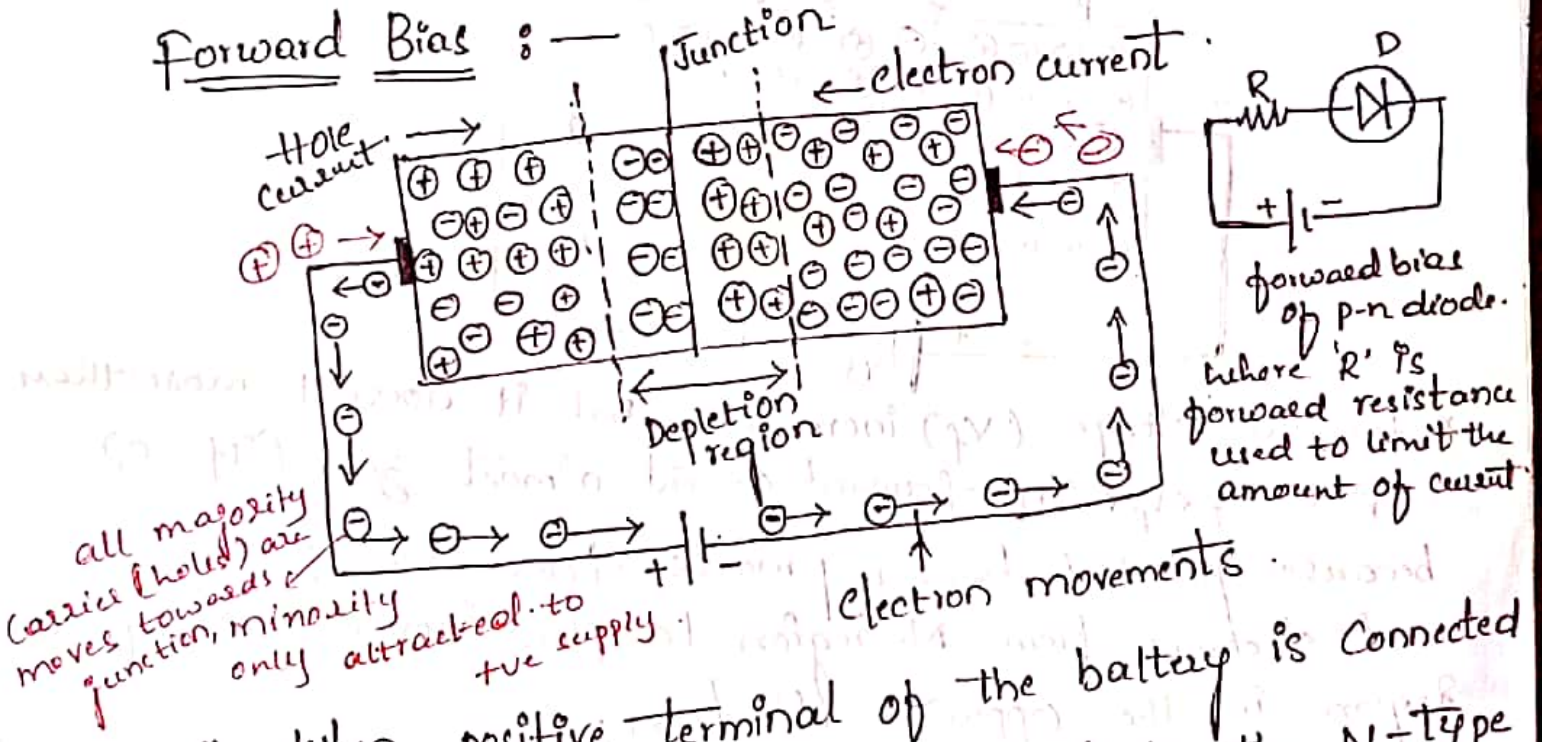 Forward Bias :—
Junction
← electron current.
Hole →
current.
D
R
+ -
forward bias
of p-n diode.
where 'R' is
forward resistance
used to limit the
amount of current
Depletion
region
all majority
Carrier (holes) are
moves towards
junction, minority
only attracted to
+ve supply.
+ -
electron movements.
positive terminal of the battery is Connected
N-type